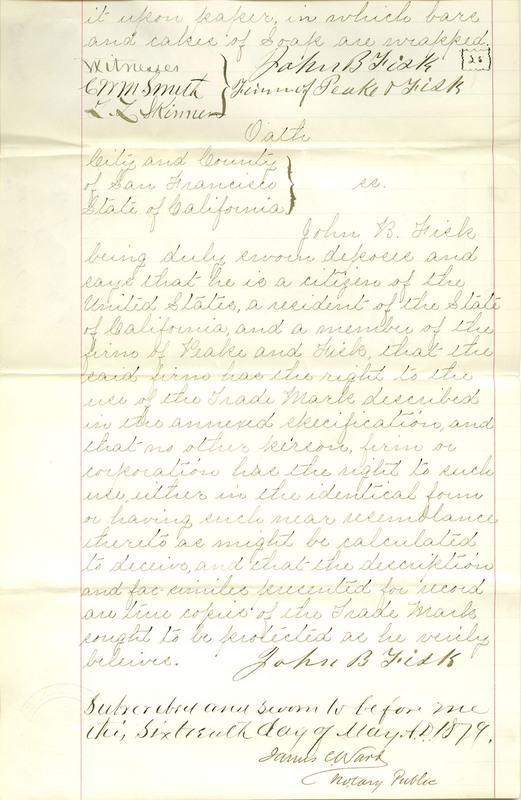 it upon paper, in which bars
and cakes of Soap are wrapped.
Witnesses
John B Fisk
C Wm Smith
Firm of Peake & Fisk
L. L. Skinner
Oath
City and County
of San Francisco
ss.
State of California
John B. Fisk
being duly sworn deposes and
says that he is a citizen of the
United States, a resident of the State
of California, and a member of the
firm of Peake and Fisk, that the
said firm has the right to the
use of the Trade Mark described
in the annexed specification, and
that no other person, firm or
corporation has the right to such
use, either in the identical form
or having such near resemblance
thereto as might be calculated
to deceive, and that the description
and fac-similes presented for record
are true copies of the Trade Mark
sought to be protected as he verily
beleives.
John B Fisk
Subscribed and sworn to before me
this Sixteenth day of May A.D. 1879.
James C. Ward
Notary Public